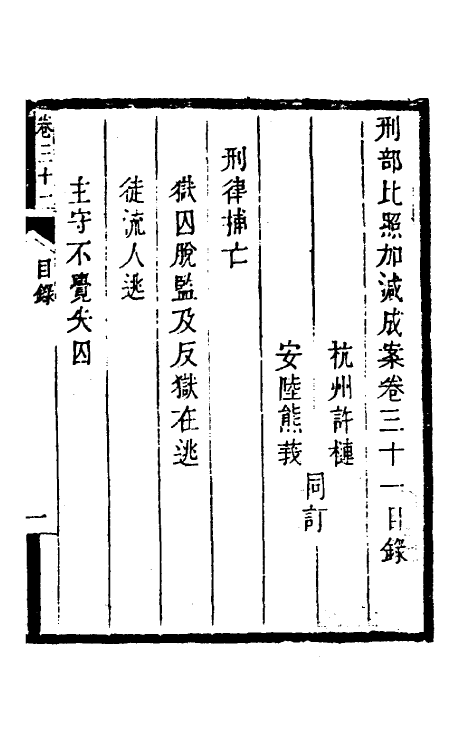 刑部比照加減成案卷三十一目錄
杭州許槤
安陸熊莪
同訂
刑律捕亡
獄囚脫監及反獄在逃
徒流人逃
主守不覺失囚
卷三十一
目錄
一